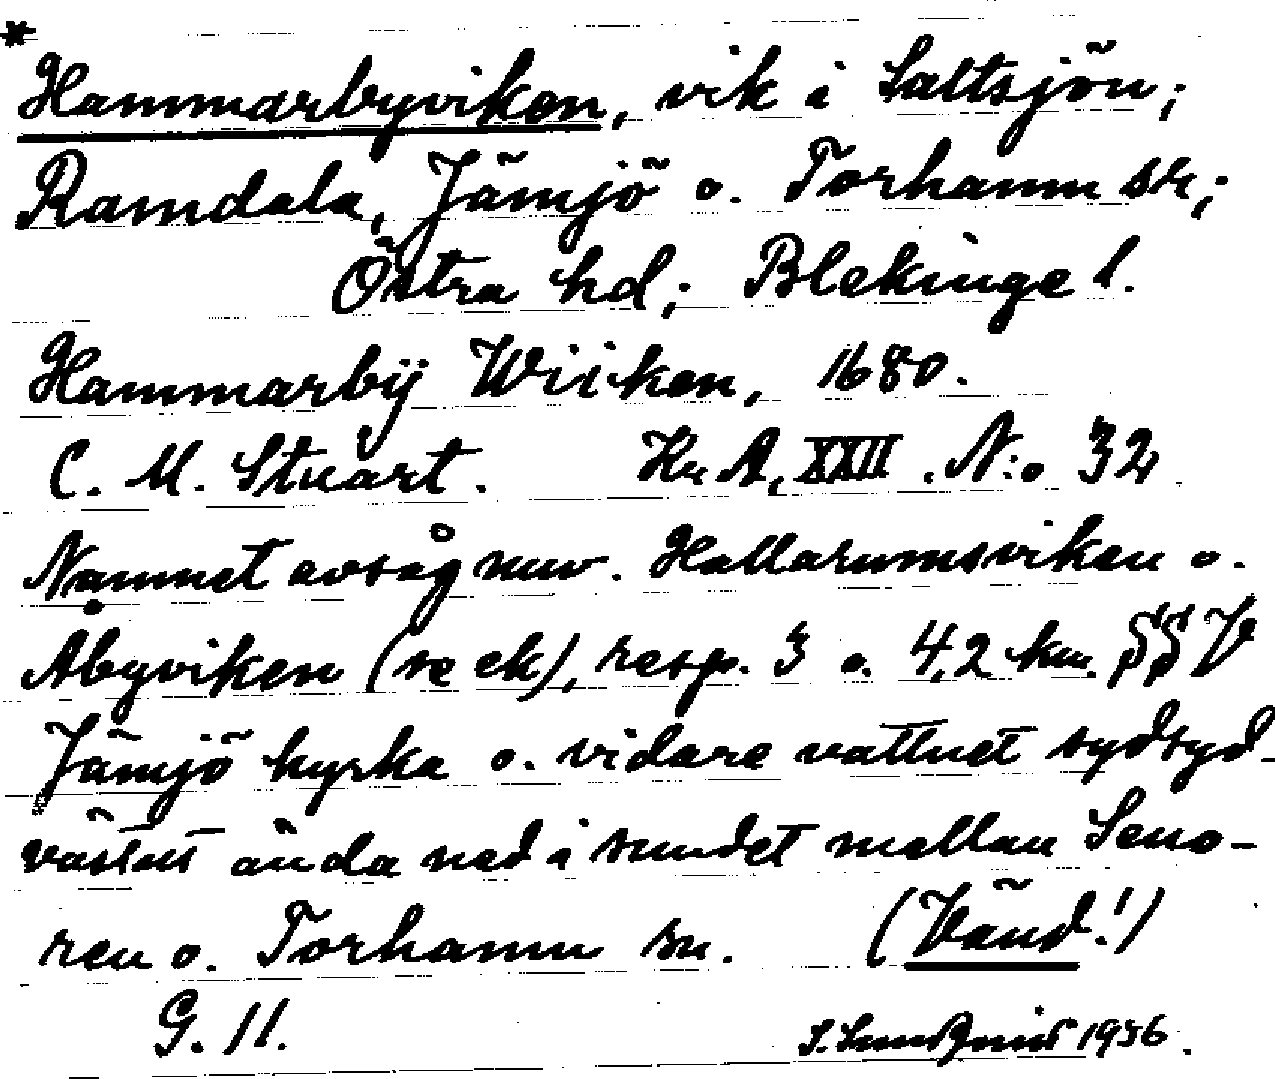 *
Hammarbyviken, vik i Saltsjön;
Ramdala, Jämjö o. Torhamn sr;
Östra hd; Blekinge l.
Hammarbÿ Wiiken, 1680.
C. M. Stuart. Kr. A, XXII. N:o 32
Namnet avsåg nuv. Hallarumsviken o.
Åbyviken (se ek), resp. 3 o. 4,2 km. SSV
Jämjö kyrka o. vidare vattnet sydsyd-
västut ända ned i sundet mellan Seno-
ren o. Torhamn sn. (Vänd!)
G. 11. 1956.